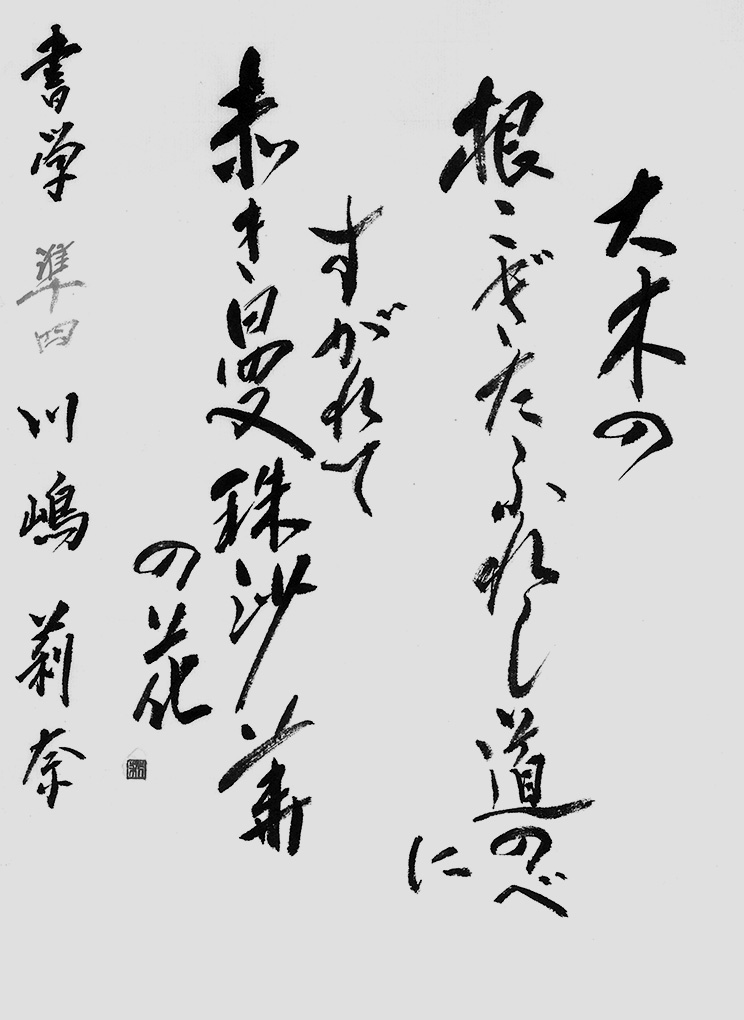 大木の
根こぎたふれし道のべ
に
すがれて
赤き曼珠沙華
の花
書学 準四 川嶋 莉奈